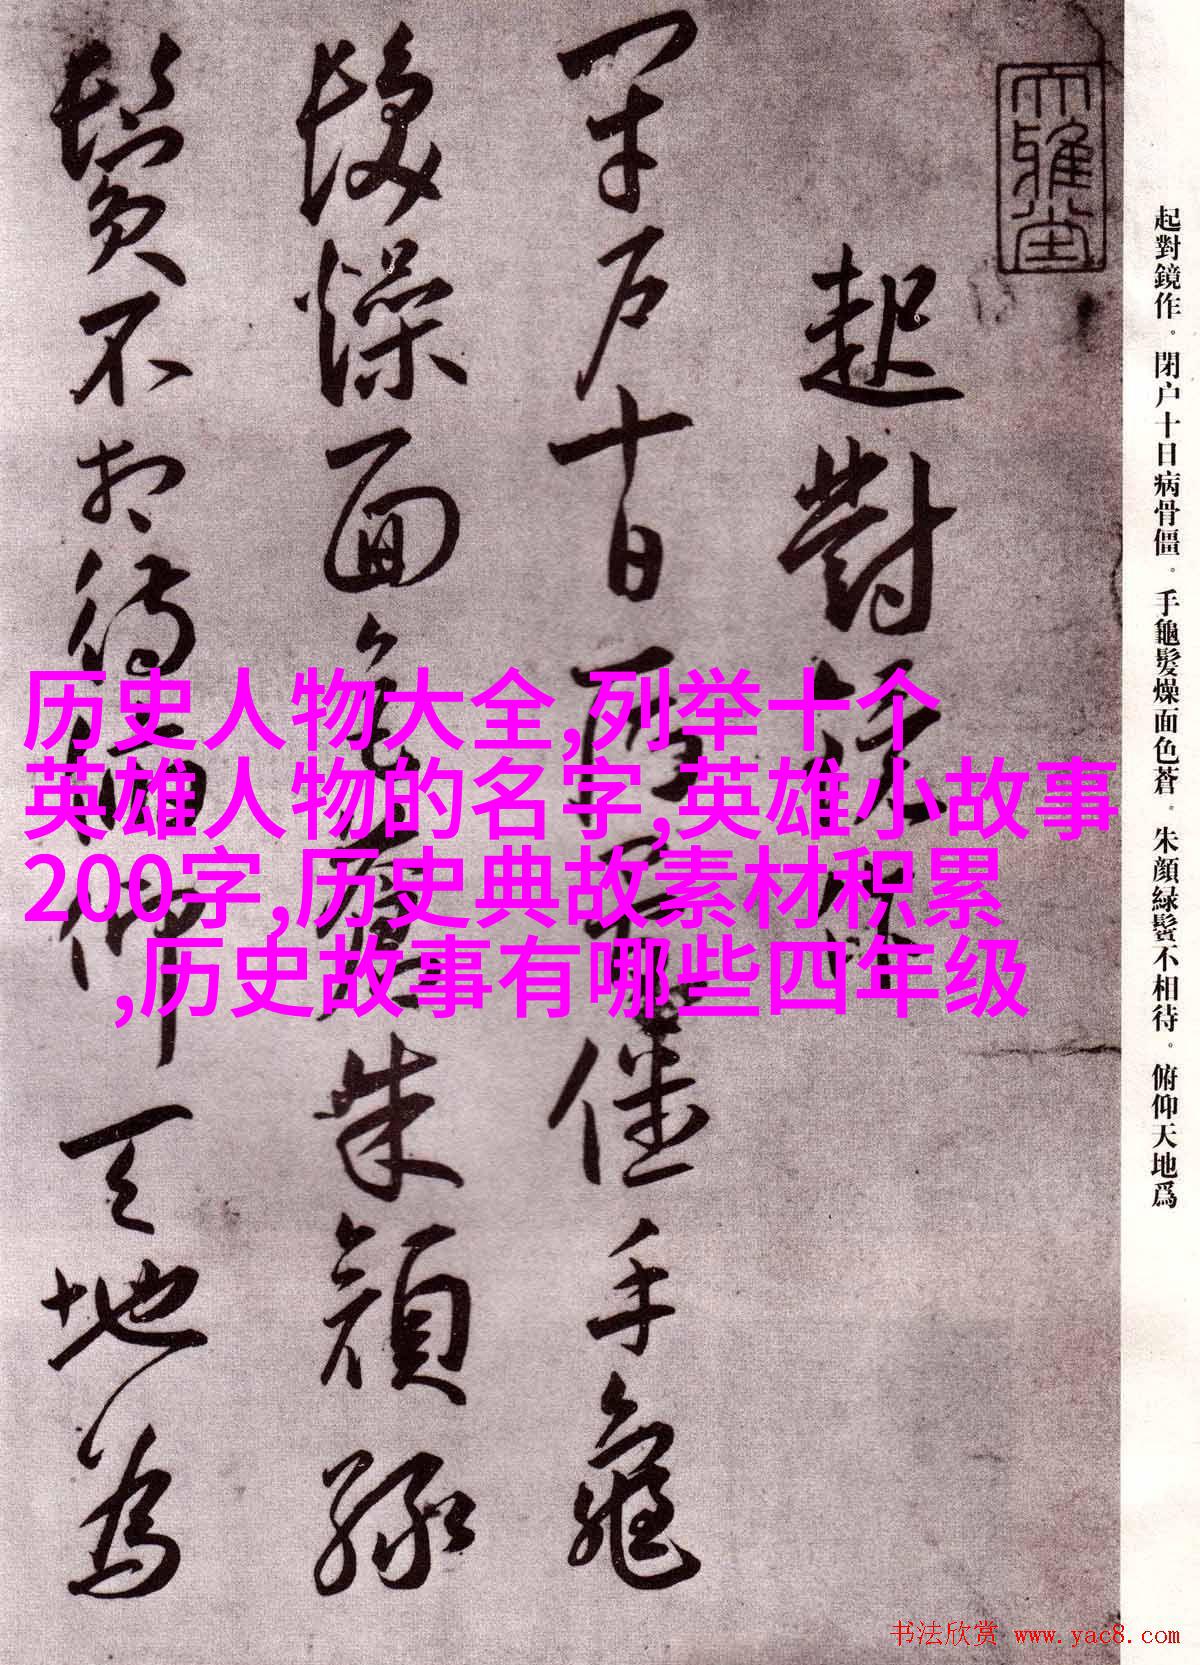 大雅堂
起對鏡作
閉户十日病骨僵手龜
髮燥面色蒼朱顔緑
鬢不相待俯仰天地為
起對鏡作。閉户十日病骨僵。手龜髮燥面色蒼。朱顔緑鬢不相待。俯仰天地爲
历史人物大全,列举十个
英雄人物的名字,英雄小故事
200字,历史典故素材积累
,历史故事有哪些四年级
书法欣赏 www.yac8.com